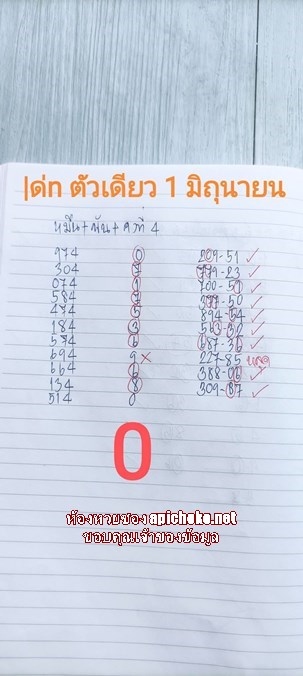 เด่น ตัวเดียว 1 มิถุนายน
หมื่น+พัน+คที่ 4
974 0 209-51 ✓
304 7 779-23 ✓
074 1 700-51 ✓
584 7 377-50 ✓
474 5 894-54 ✓
184 3 563-30 ✓
574 6 687-36 ✓
694 9 × 227-85 หลุด
664 6 388-06 ✓
134 8 309-87 ✓
514 0
0
ห้องหวยซอง apichoke.net
ขอบคุณเจ้าของข้อมูล